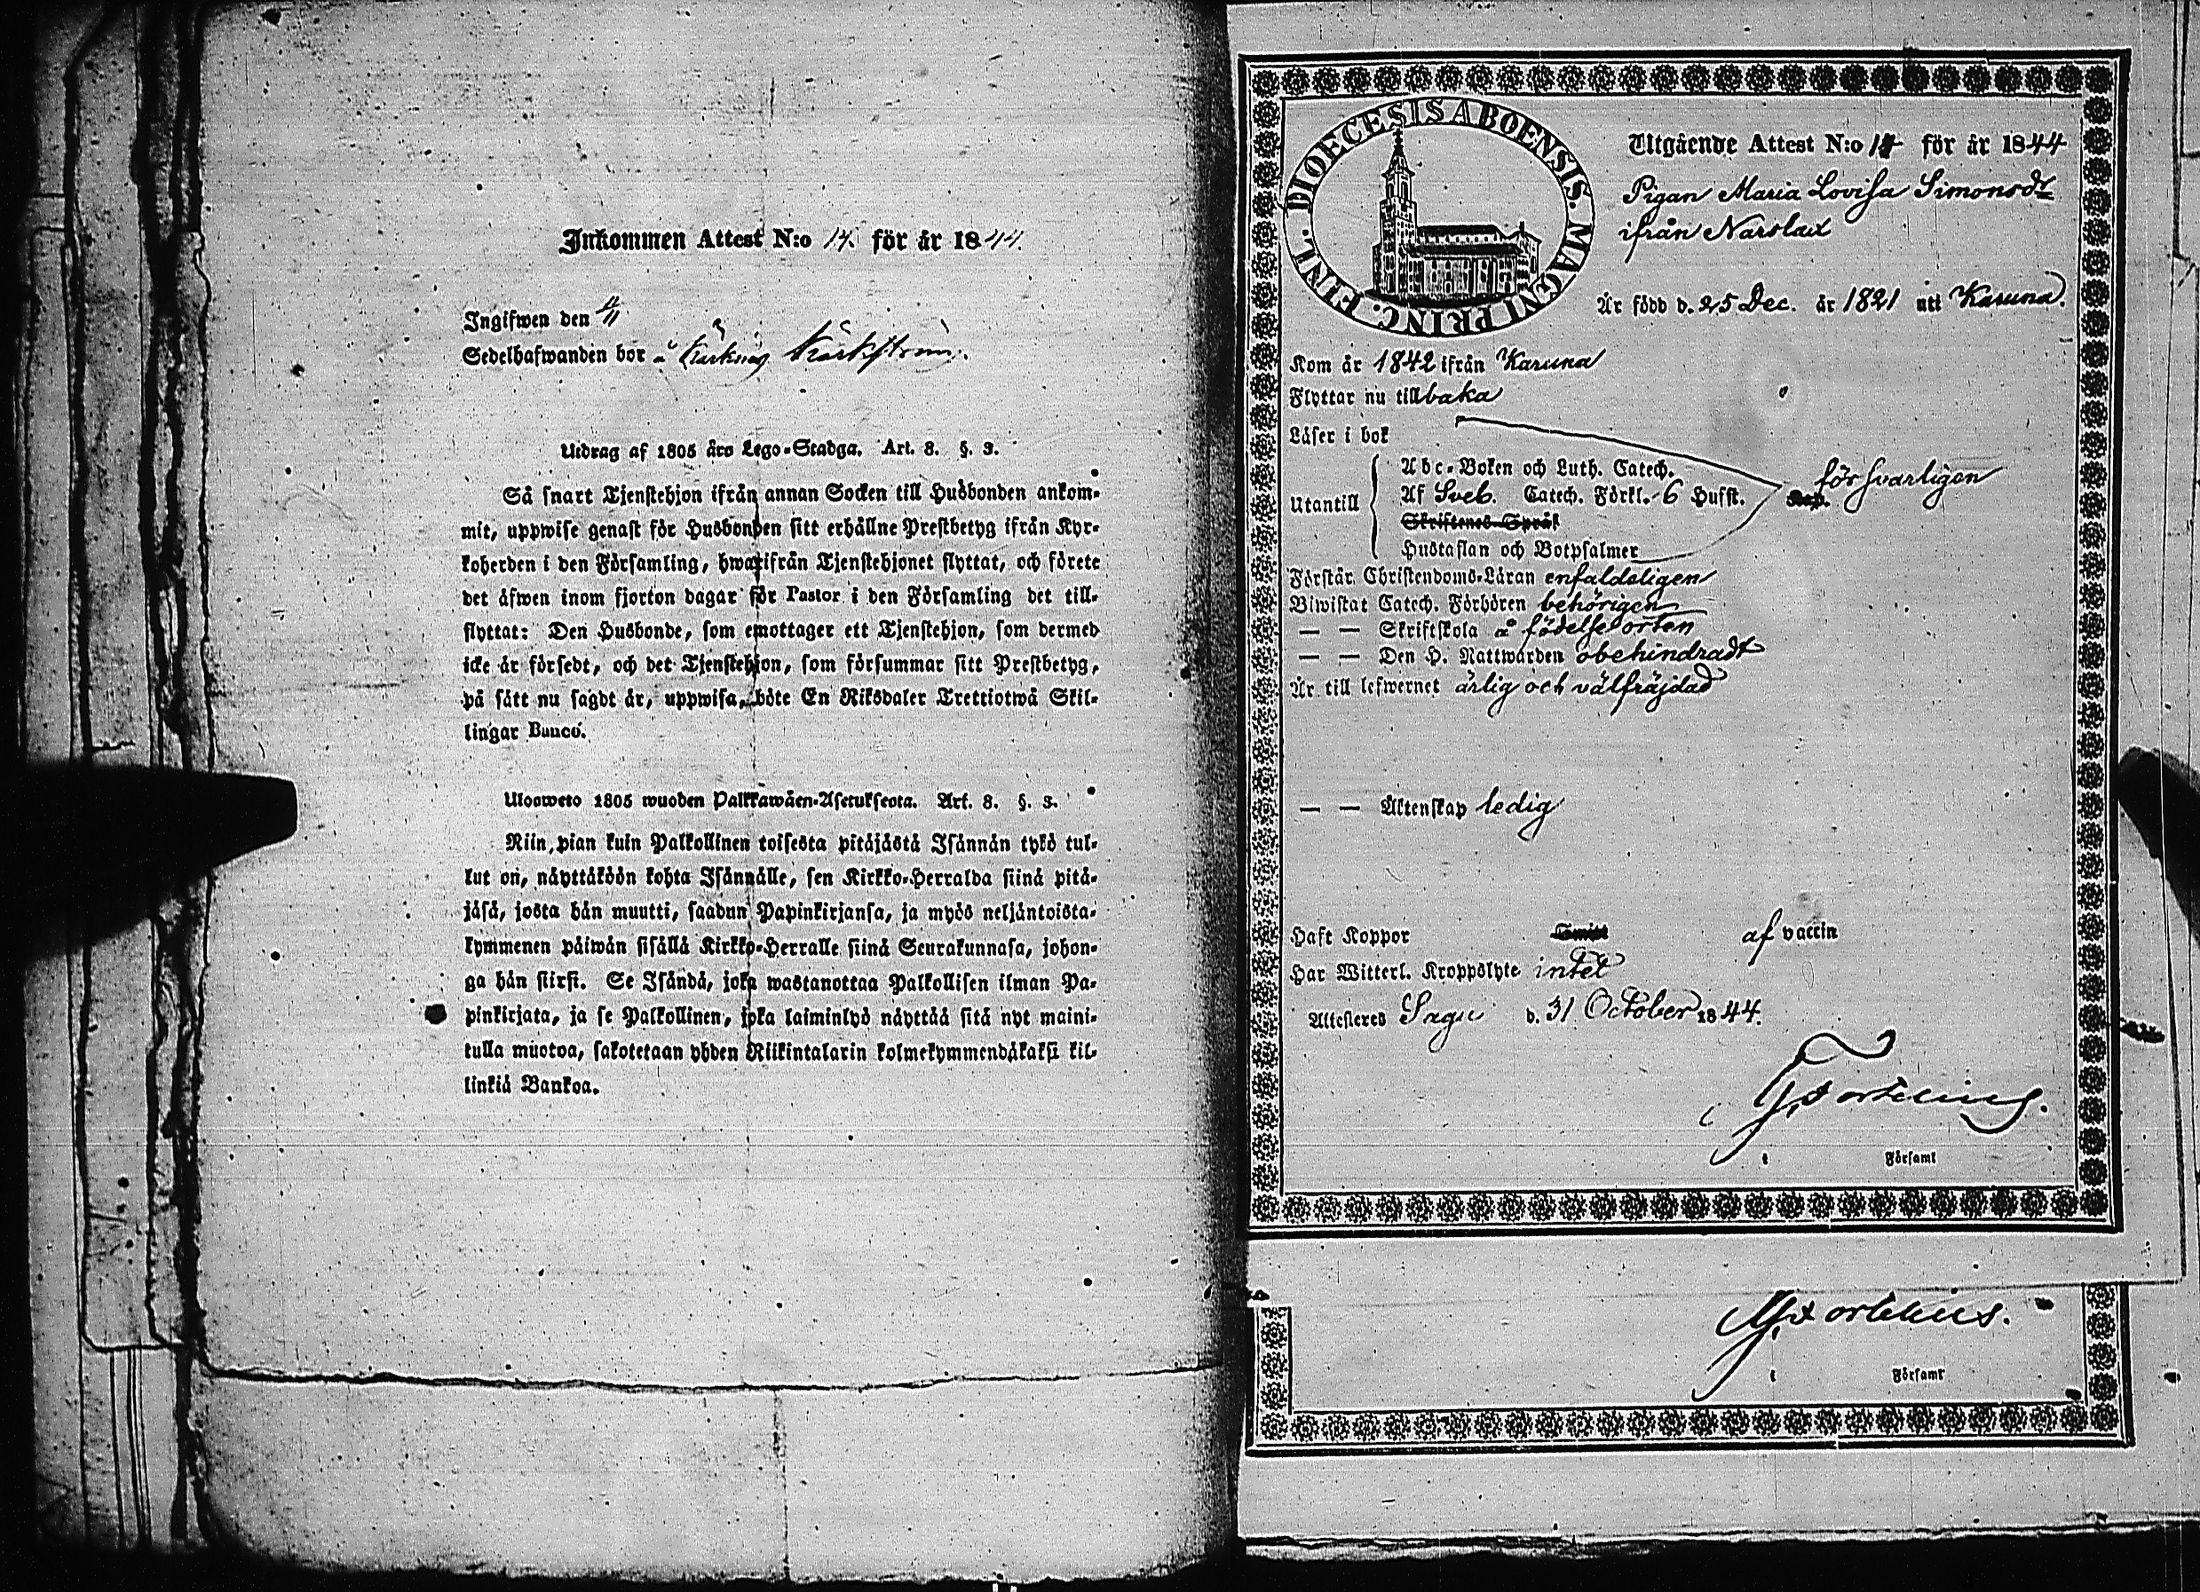 Inkommen Attest N:o 14. för år 1844.
Ingifwen den 4/11
Sedelhafwanden bor å
Utdrag af 1805 års Lego-Stadga. Art. 8. §. 3.
Så snart Tjenstehjon ifrån annan Socken till Husbonden ankom-
mit, uppwise genast för Husbonden sitt erhållne Prestbetyg ifrån Kyr-
koherden i den Församling, hwarifrån Tjenstehjonet flyttat, och förete
det äfwen inom fjorton dagar för Pastor i den Församling det till-
flyttat: Den Husbonde, som emottager ett Tjenstehjon, som dermed
icke är försedt, och det Tjenstehjon, som försummar sitt Prestbetyg,
på sätt nu sagdt är, uppwisa, böte En Riksdaler Trettiotwå Skil-
lingar Banco.
Ulosweto 1805 wuoden Palkkawäen-Asetuksesta. Art. 8. §. 3.
Niin pian kuin Palkollinen toisesta pitäjästä Isännän tykö tul-
lut on, näyttäköön kohta Isännälle, sen Kirkko-Herralda siinä pitä-
jäsä, josta hän muutti, saadun Papinkirjansa, ja myös neljäntoista-
kymmenen päiwän sisällä Kirkko-Herralle siinä Seurakunnasa, johon-
ga hän siirsi. Se Isändä, joka wastanottaa Palkollisen ilman Pa-
pinkirjata, ja se Palkollinen, joka laiminlyö näyttää sitä nyt maini-
tulla muotoa, sakotetaan yhden Riikintalarin kolmekymmendäkaksi kil-
linkiä Bankoa.
DIOECESIS ABOENSIS. MAGNI PRINC. FINL.
Utgående Attest N:o 14 för år 1844
Pigan Maria Lovisa Simonsdr
ifrån Narslax
Är född d. 25 Dec. år 1821 uti Karuna.
Kom år 1842 ifrån Karuna
Flyttar nu tillbaka
Läser i bok
Utantill
Abc-Boken och Luth. Catech.
Af Sveb. Catech. Förkl. 6 Hufst. försvarligen
Skriftenes Språk
Hustaflan och Botpsalmer
Förstår Christendoms-Läran enfaldeligen
Biwistat Catech. Förhören behörigen
— — Skriftskola å födelseorten
— — Den H. Nattwarden obehindradt
Är till lefwernet ärlig och välfräjdad
— — Äktenskap ledig
Haft Koppor af vaccin
Har Witterl. Kroppslyte intet
Attesteres Sagu d. 31 October 1844.
G. Fortelius.
i Församl
Fortelius.
i Församl